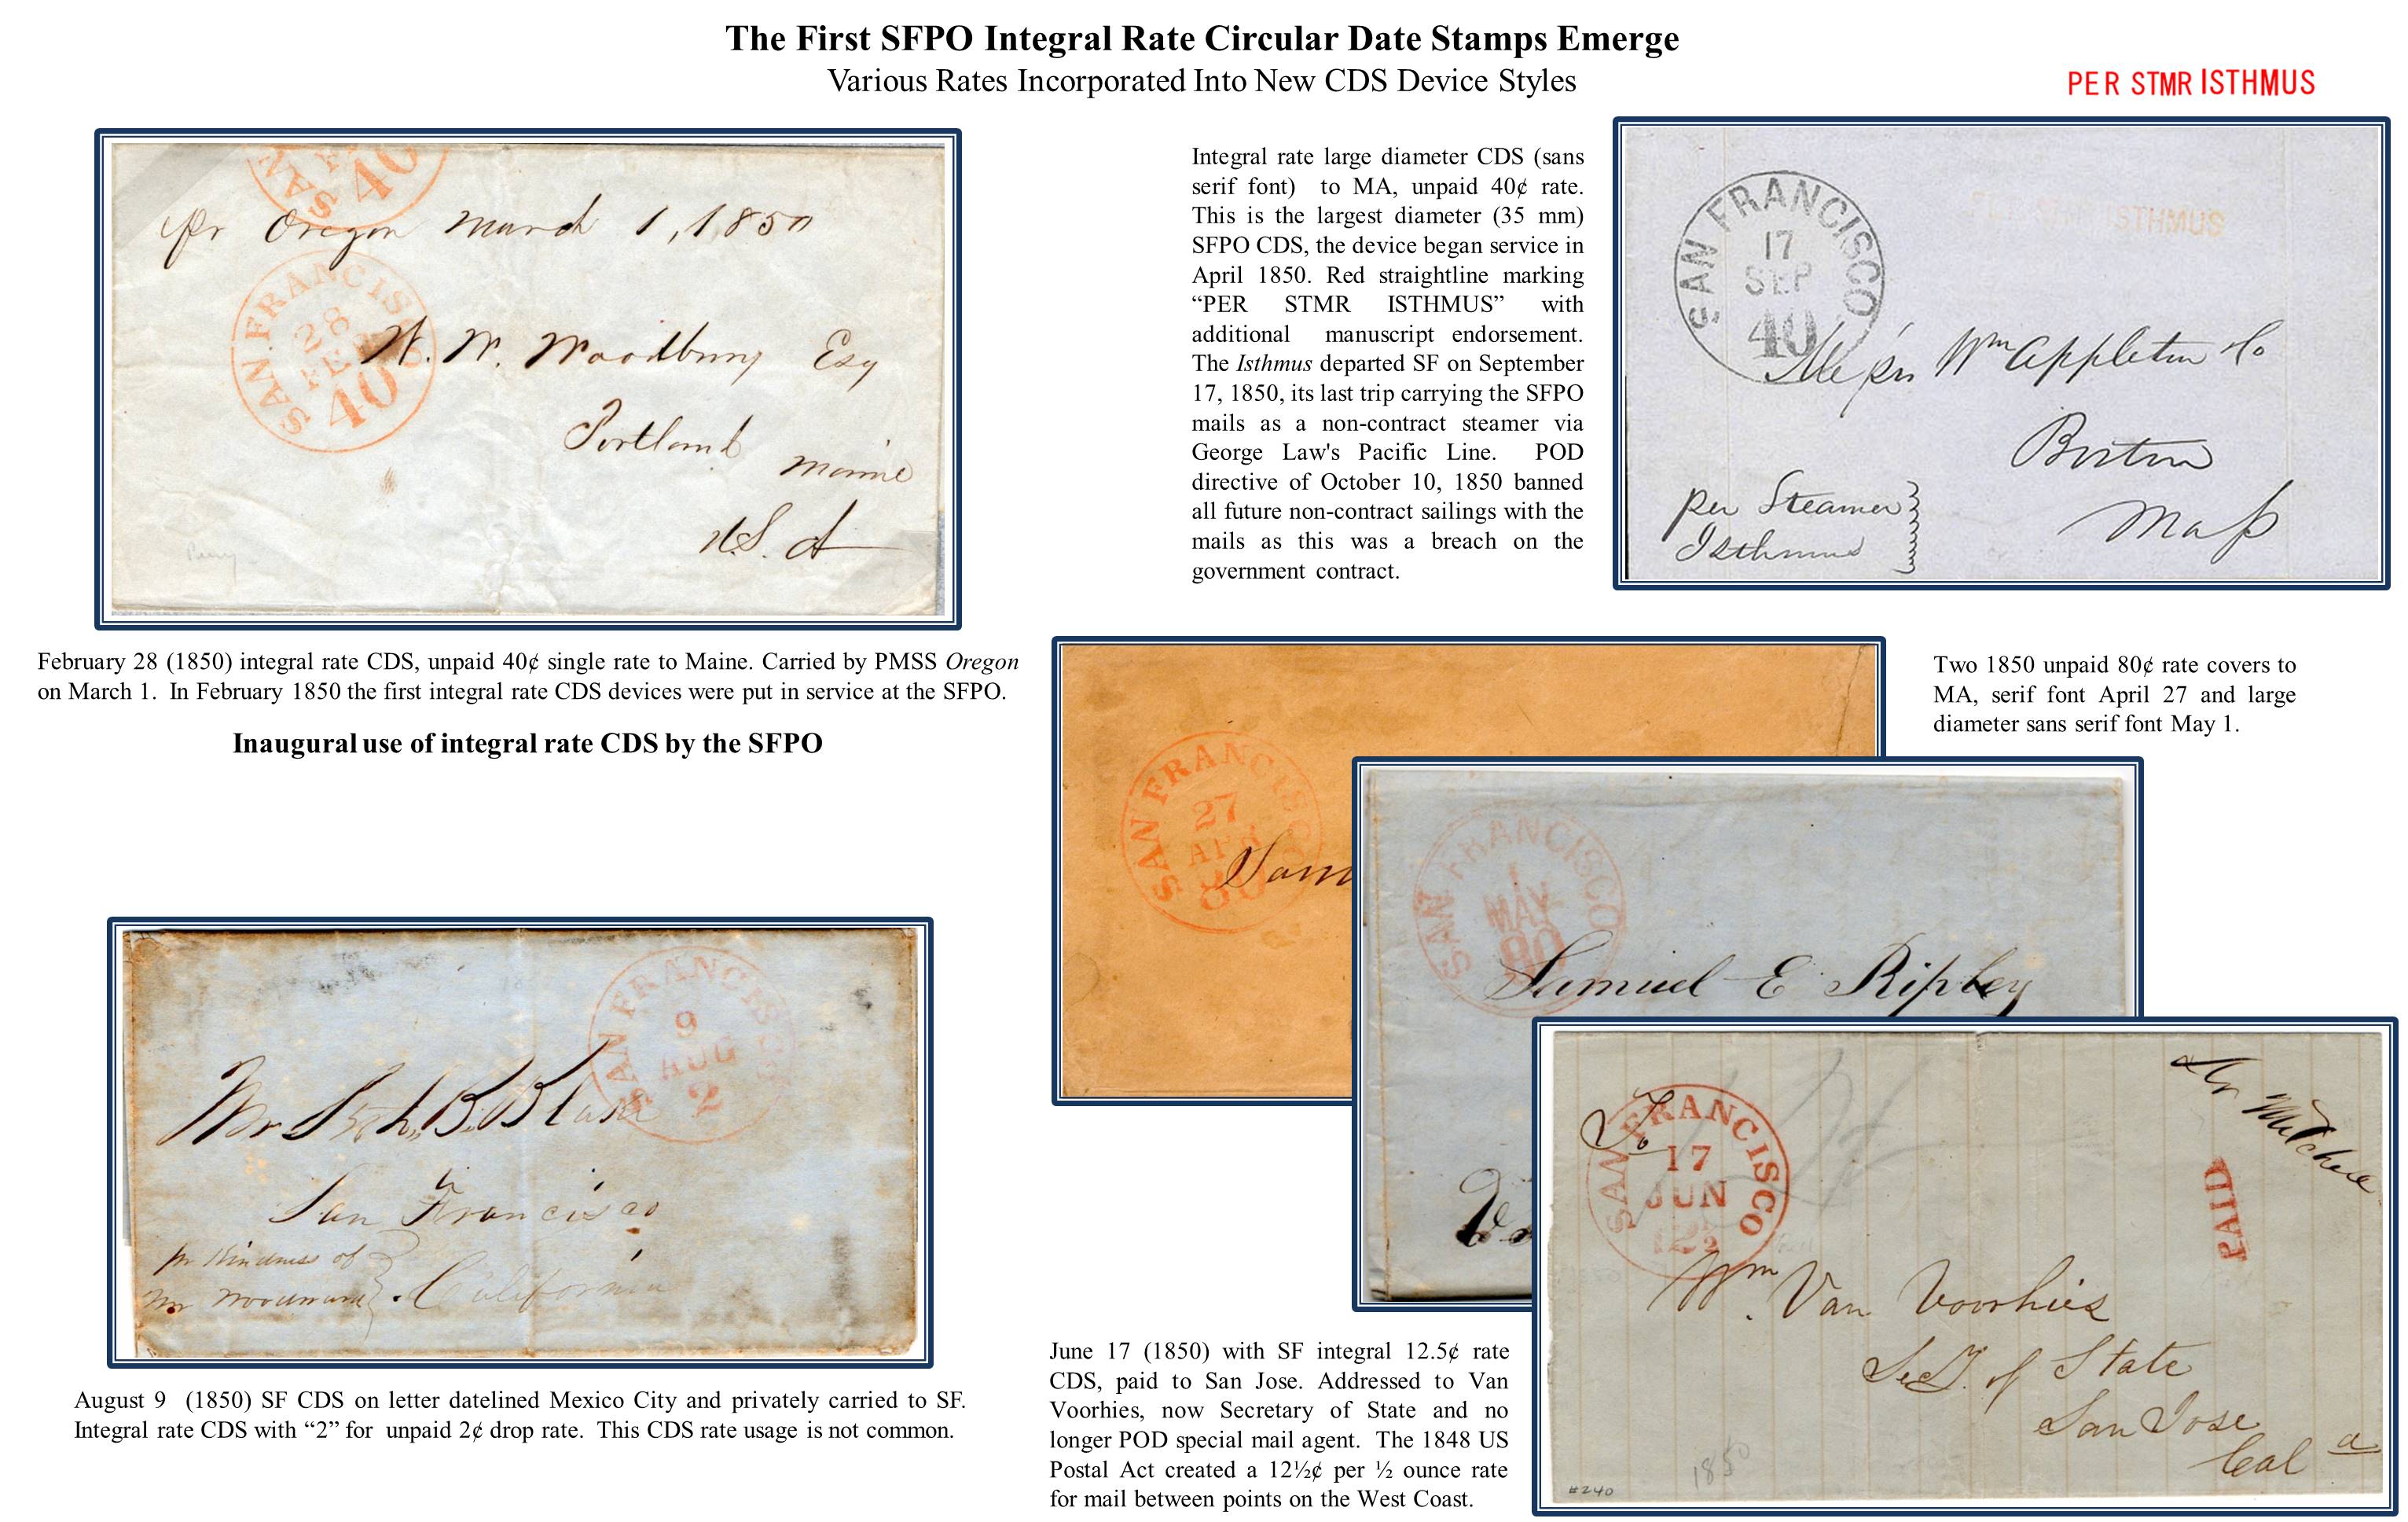 The First SFPO Integral Rate Circular Date Stamps Emerge
Various Rates Incorporated Into New CDS Device Styles
PER STMR ISTHMUS
SAN
40
pr Oregon March 1, 1850
SAN FRANCISCO
28
FEB
40
W. W. Woodbury Esq
Portland
Maine
U.S. A
February 28 (1850) integral rate CDS, unpaid 40¢ single rate to Maine. Carried by PMSS Oregon
on March 1. In February 1850 the first integral rate CDS devices were put in service at the SFPO.
Inaugural use of integral rate CDS by the SFPO
Integral rate large diameter CDS (sans
serif font) to MA, unpaid 40¢ rate.
This is the largest diameter (35 mm)
SFPO CDS, the device began service in
April 1850. Red straightline marking
“PER STMR ISTHMUS” with
additional manuscript endorsement.
The Isthmus departed SF on September
17, 1850, its last trip carrying the SFPO
mails as a non-contract steamer via
George Law's Pacific Line. POD
directive of October 10, 1850 banned
all future non-contract sailings with the
mails as this was a breach on the
government contract.
SAN FRANCISCO
17
SEP
40
ISTHMUS
Wm Appleton & Co
Boston
Mass
per Steamer
Isthmus
Two 1850 unpaid 80¢ rate covers to
MA, serif font April 27 and large
diameter sans serif font May 1.
SAN FRANCISCO
27
APR
80
Sam
SAN FRANCISCO
1
MAY
80
Samuel E Ripley
SAN FRANCISCO
9
AUG
2
Mr B. Blake
San Francisco
California
pr Kindness of
Mr Woodward
August 9 (1850) SF CDS on letter datelined Mexico City and privately carried to SF.
Integral rate CDS with “2” for unpaid 2¢ drop rate. This CDS rate usage is not common.
June 17 (1850) with SF integral 12.5¢ rate
CDS, paid to San Jose. Addressed to Van
Voorhies, now Secretary of State and no
longer POD special mail agent. The 1848 US
Postal Act created a 12½¢ per ½ ounce rate
for mail between points on the West Coast.
To
SAN FRANCISCO
17
JUN
12½
PAID
Wm. Van Voorhies
Secy. of State
San Jose
Cal a
1850
#240